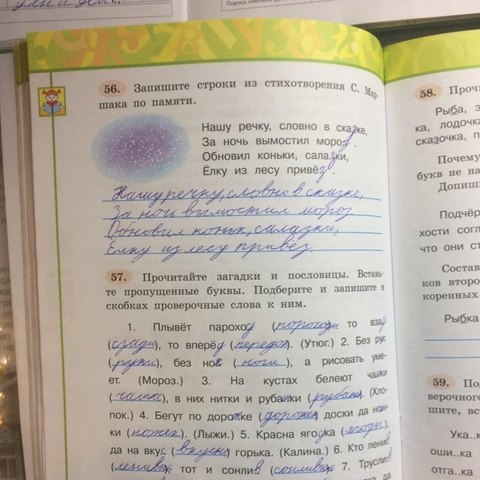 56. Запишите строки из стихотворения С. Мар-
шака по памяти.
Нашу речку, словно в сказке,
За ночь вымостил мороз.
Обновил коньки, салазки,
Ёлку из лесу привёз.
Нашу речку, словно в сказке,
За ночь вымостил мороз.
Обновил коньк, салазки,
Ёлку из лесу привёз.
57. Прочитайте загадки и пословицы. Вставь-
те пропущенные буквы. Подберите и запишите в
скобках проверочные слова к ним.
1. Плывёт пароход (пароходы) то взад
(сзади), то вперёд (передок). (Утюг.) 2. Без рук
(руки), без ног (ноги), а рисовать уме-
ет. (Мороз.) 3. На кустах белеют чашки
(чашка), в них нитки и рубашки (рубаха). (Хло-
пок.) 4. Бегут по дорожке (дорожек) доски да нож-
ки (ножек). (Лыжи.) 5. Красна ягодка (ягоды),
да на вкус (вкусны) горька. (Калина.) 6. Кто ленив
(ленивы), тот и сонлив (сонливы). 7. Труслив
58. Проч
Рыба, з
ка, лодочка
сказочка, п
Почему
букв не на
Допиши
Подчёр
хости согл
что они ст
Состав
ков второ
коренных
Рыбка
59. По
верочного
шите, вст
Ука..к
оши..ка
отга..ка